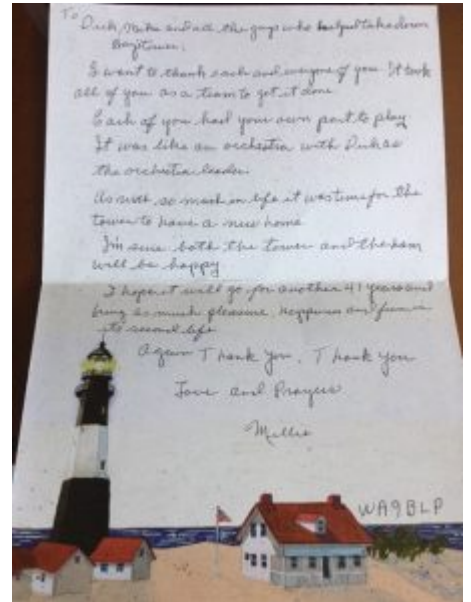 To
Dick, Mike and all the guys who helped take down
tower.
I want to thank each and everyone of you. It took
all of you as a team to get it done.
Each of you had your own part to play
It was like an orchestra with Dick as
the orchestra leader.
As with so much in life it was time for the
tower to have a new home
I'm sure both the tower and the ham
will be happy
I hope it will go for another 41 years and
bring as much pleasure, happiness and fun in
its second life
Again Thank you, Thank you
Love and Prayers
Millie
WA9BLP